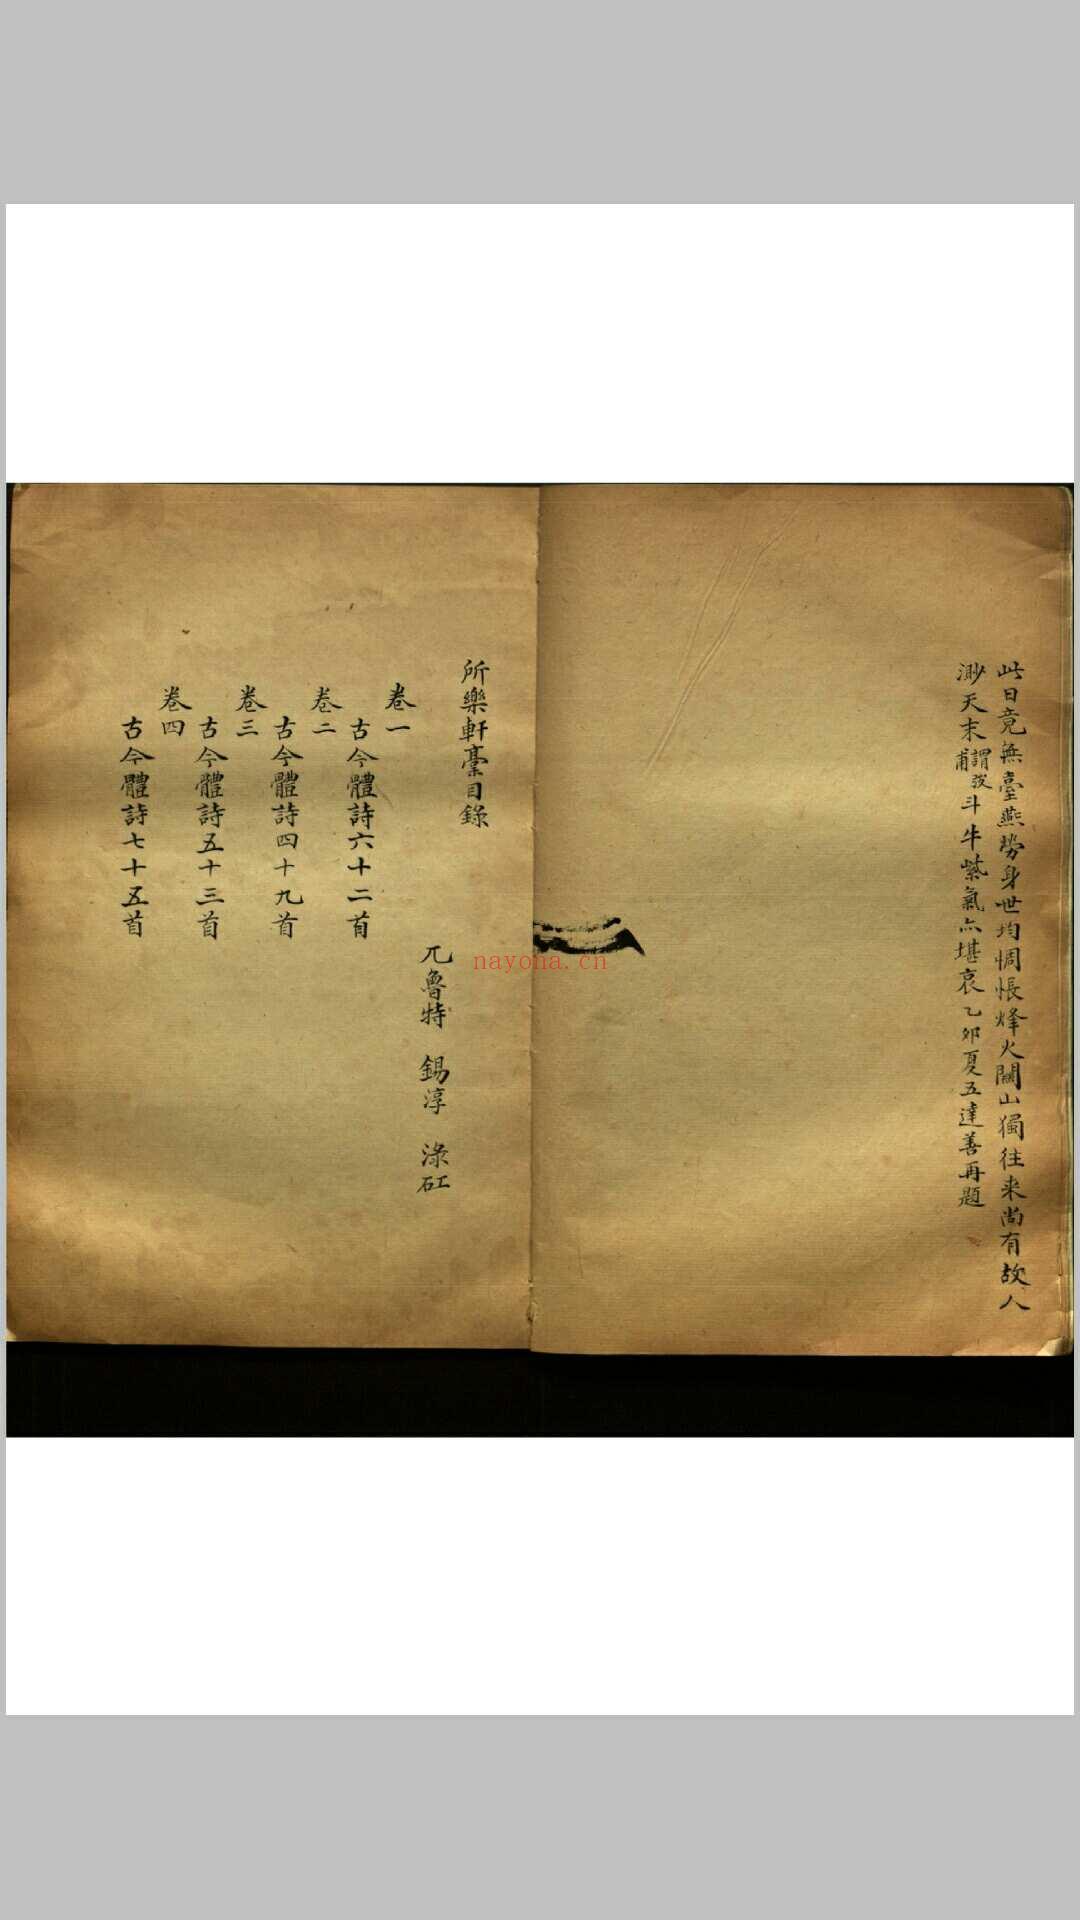 此日竟無臺燕勞身世均惆悵烽火關山獨往来尚有故人
渺天末謂弢甫斗牛紫氣亦堪哀乙卯夏五達善再題
所樂軒藁目錄
兀魯特 錫淳 淥矼
卷一
古今體詩六十二首
卷二
古今體詩四十九首
卷三
古今體詩五十三首
卷四
古今體詩七十五首
nayona.cn